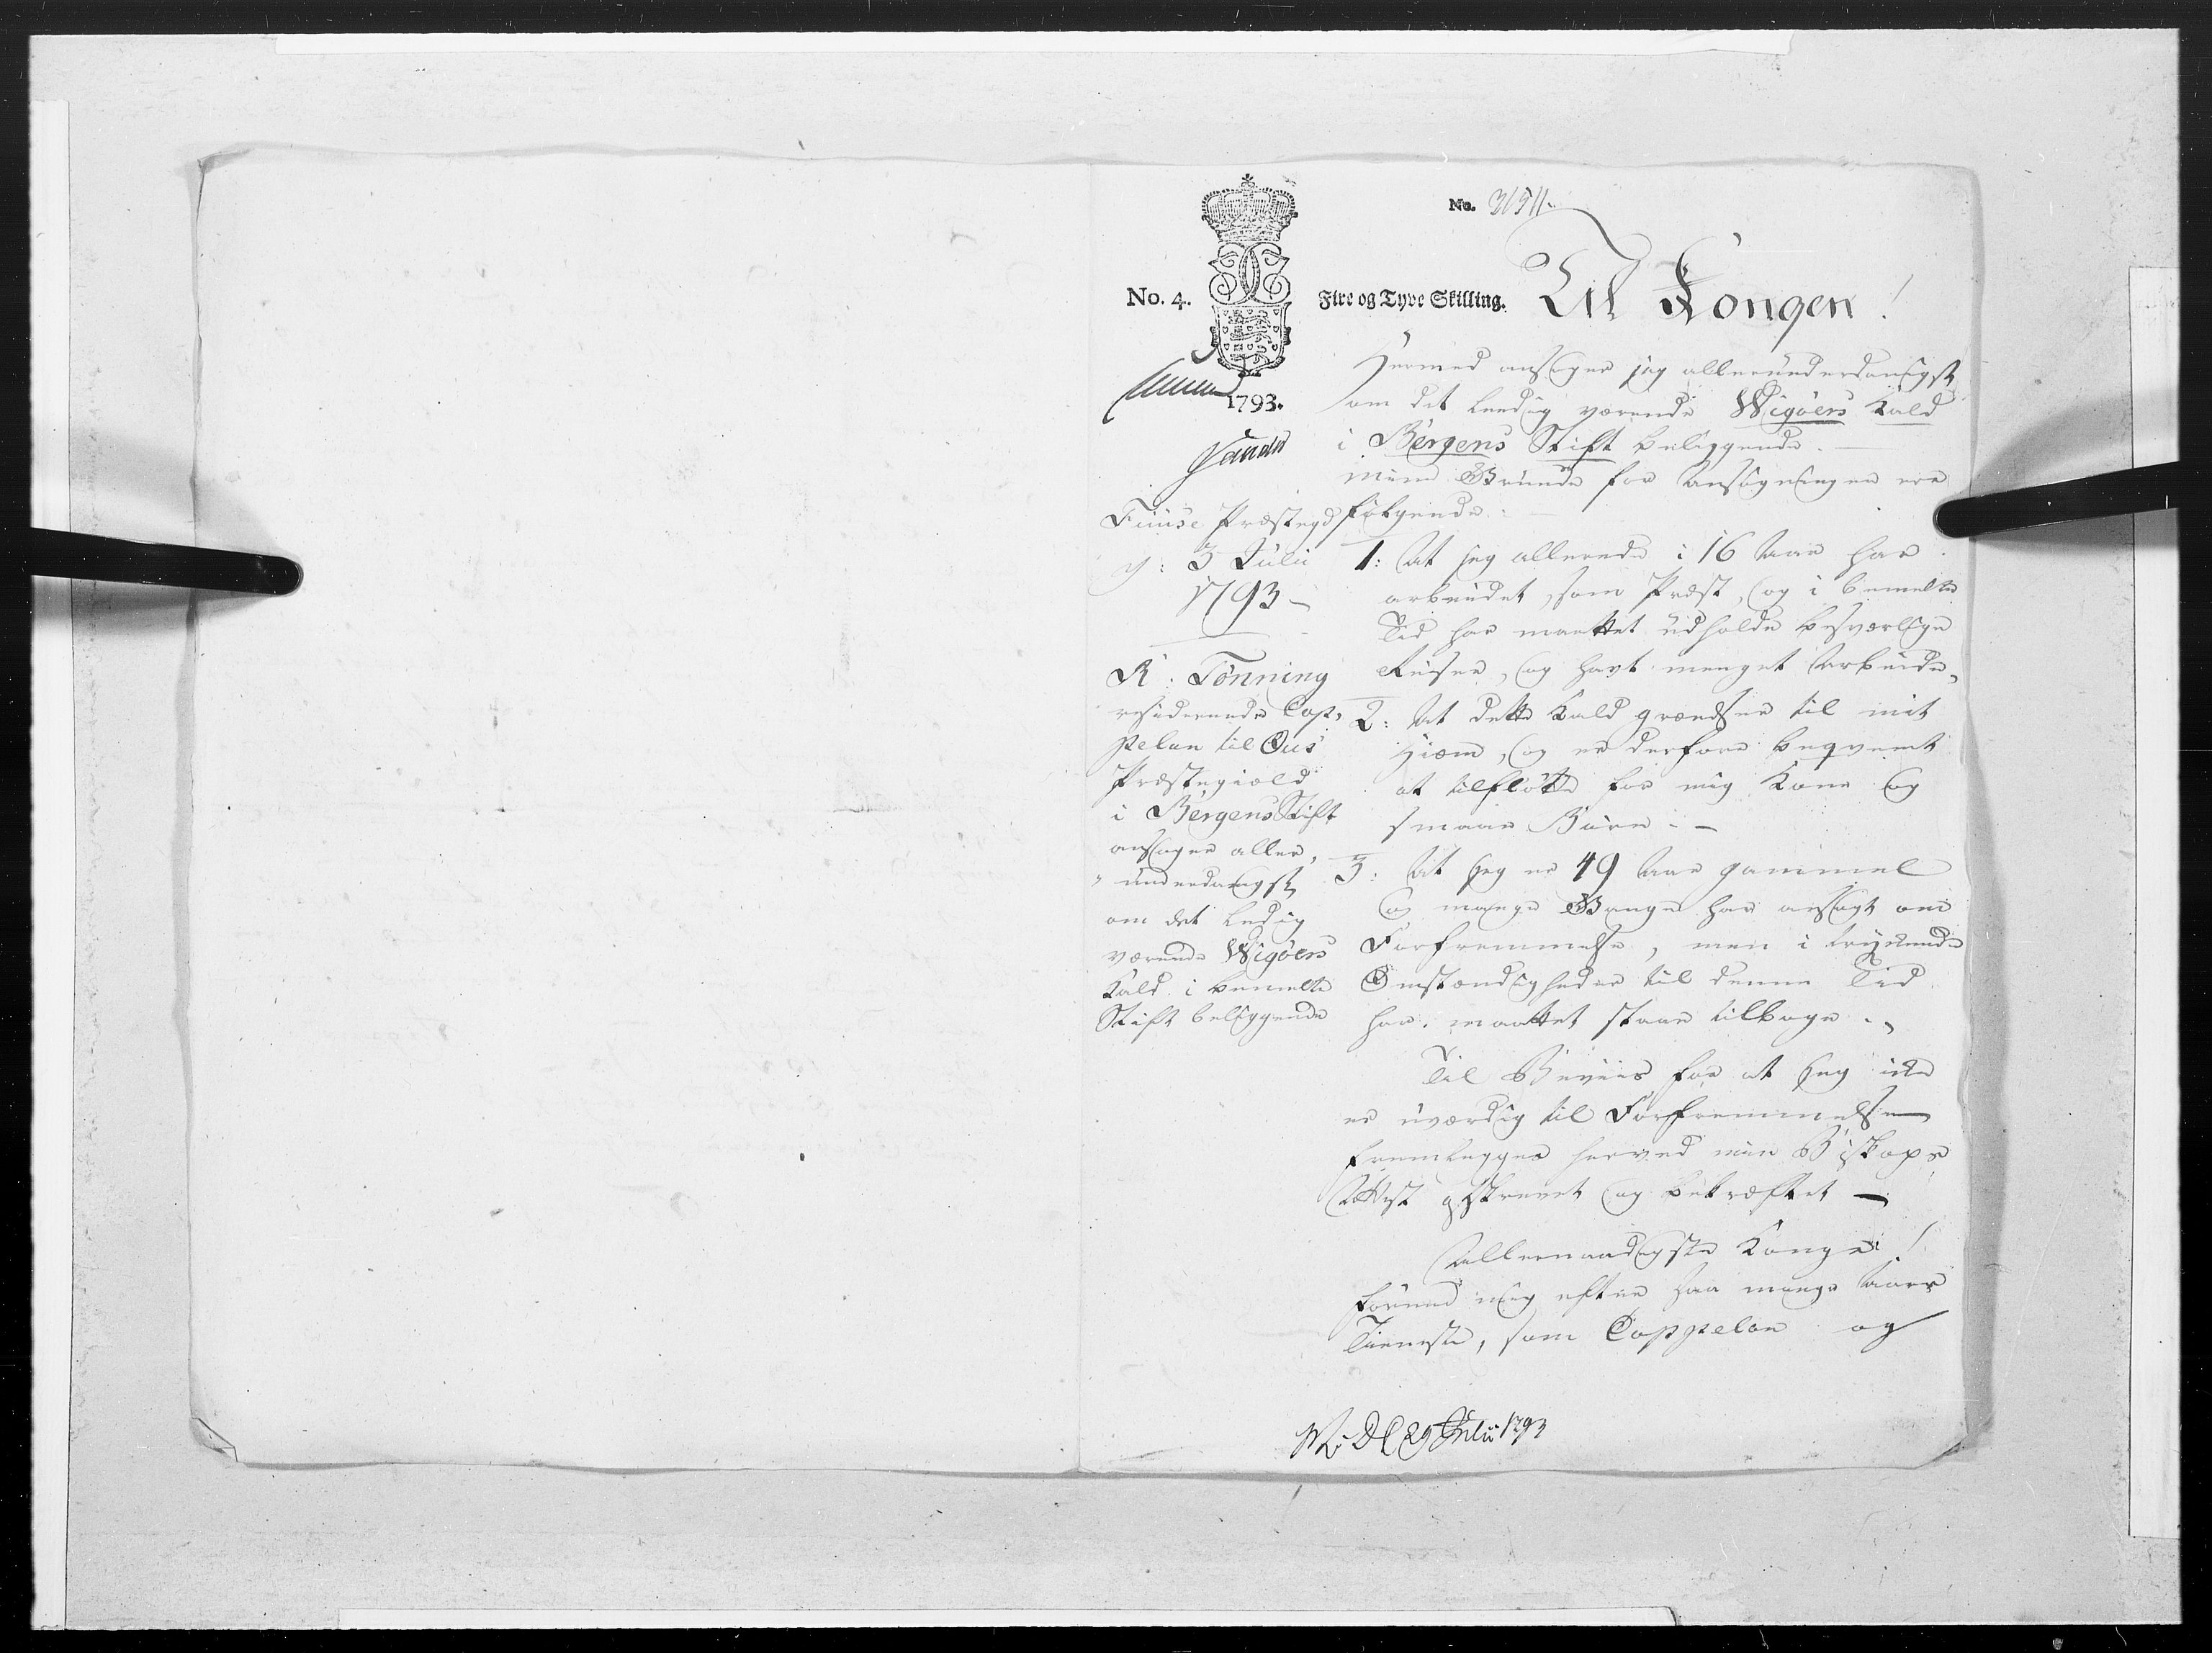 No. 31511.
No. 4.
Fire og Tyve Skilling.
Til Kongen!
1793.
Hermed ansøger jeg allerunderdanigst
om det leedig værende Wigøers Kald
i Bergens Stift beliggende. —
mine Grunde for Ansøgningen ere
følgende: —
1: At jeg allerede i 16 Aar har
arbeidet, som Præst, og i bemelte
Tid har maattet udholde besværlige
Reiser, og havt meeget Arbeide,
2: At dette Kald grændser til mit
Hiem, og er derfore beqvemt
at tilflötte for mig Kone og
smaae Börn. —
3: At jeg er 49 Aar gammel
og mange Gange har ansögt om
Forfremmelse, men i trykkende
Omstændigheder til denne Tid
har maattet staae tilbage.
Til Beviis for at jeg ikke
er uværdig til Forfremmelse
fremlegges herved min Biskops
Attest gskrevet og bekræftet —
Allernaadigste Konge!
forund mig efter saa mange Aars
Tieneste, som Cappelan og
Fuuse Præstegd
d: 3 Julii
1793 —
R: Tønning
residerende Cap-
pelan til Ous
Præstegield
i Bergens Stift
ansøger aller-
underdanigst
om det ledig
værende Wigøers
Kald i bemelte
Stift beliggende
D 29 Julii 1793